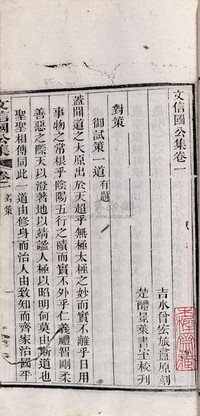 文信國公集卷一
吉水曾宏
原刻
楚醴景萊書室校刊
對策
御試策一道有題
蓋聞道之大原出於天超乎無極太極之妙而實不離乎日用
事物之常根乎陰陽五行之賾而實不外乎仁義禮智剛柔
善惡之際天以澄著地以靖謐人極以昭明何莫由斯道也
聖聖相傳同此一道由修身而治人由致知而齊家治國平
文信國公集
卷一
對策